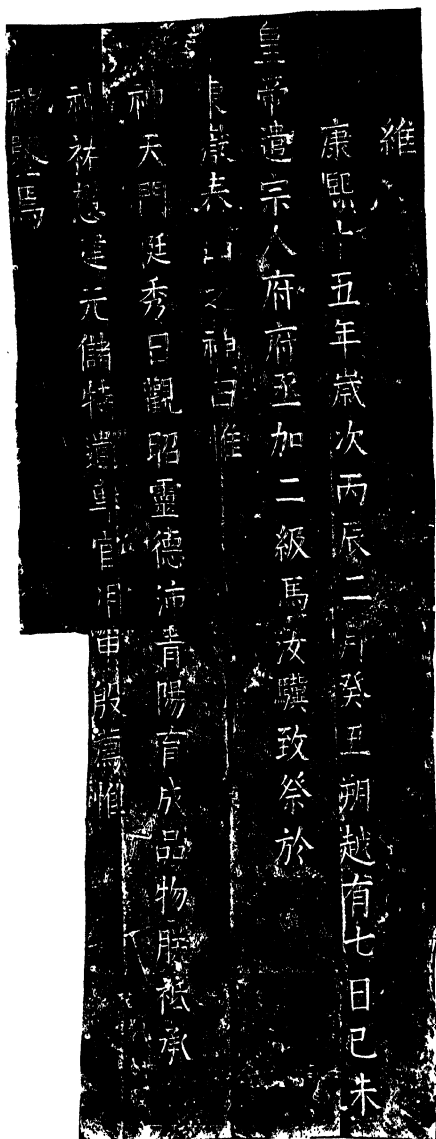 維
康熙十五年歲次丙辰二月癸丑朔越有七日己未
皇帝遣宗人府府丞加二級馬汝驥致祭於
東嶽泰山之神曰惟
神天門挺秀日觀昭靈德沛青陽育成品物朕祗承
神祐慈建元儲特遣專官用申殷薦惟
神鑒焉